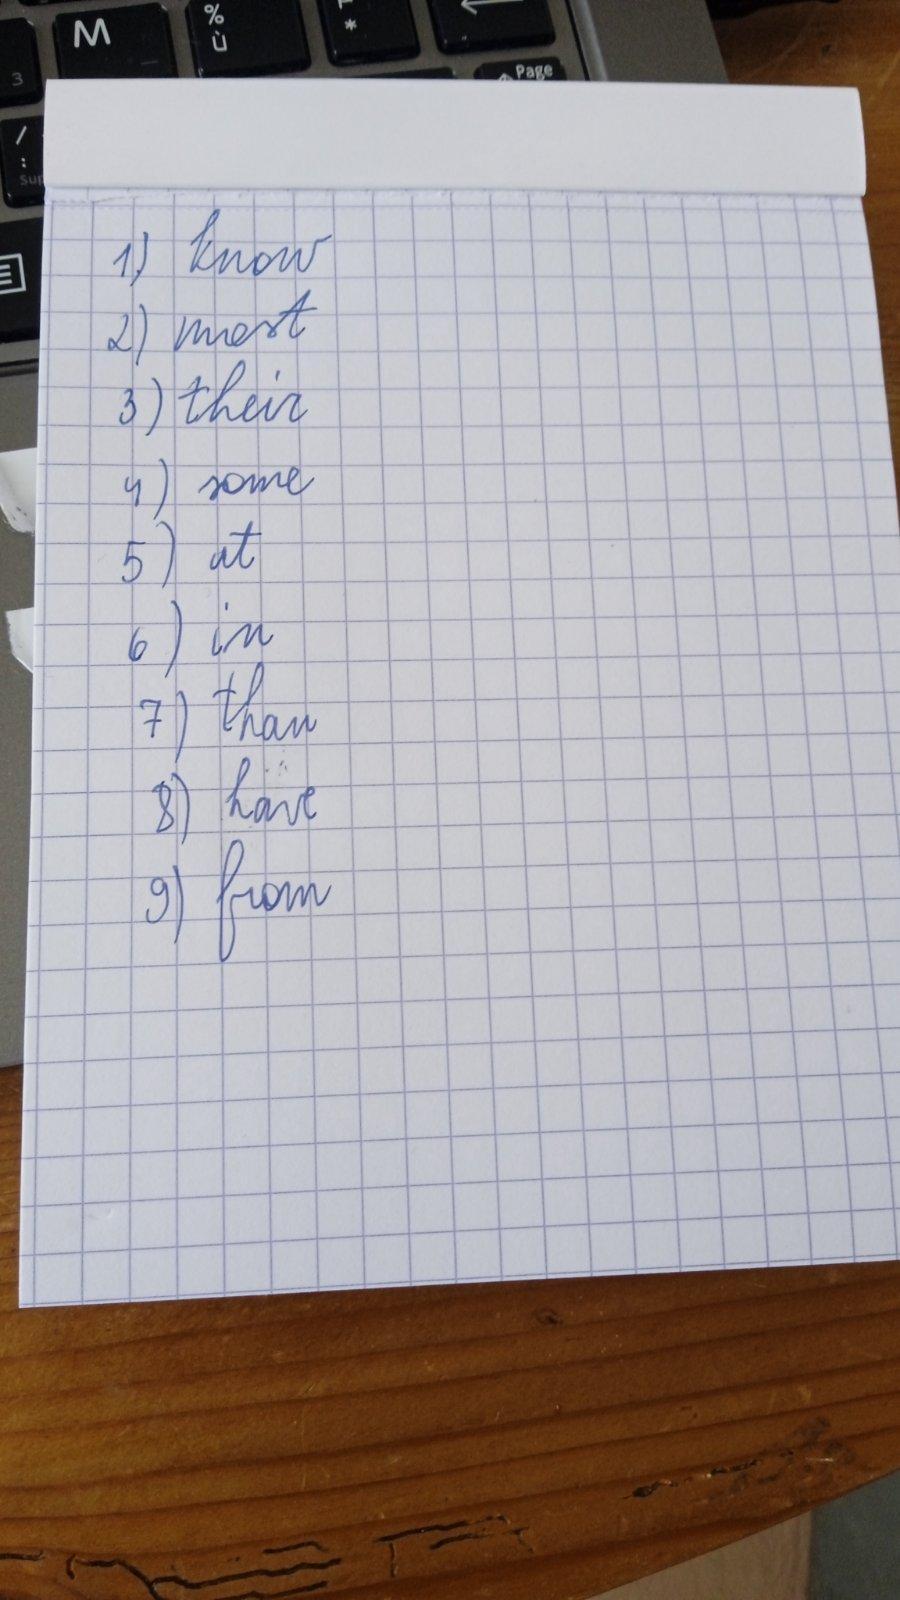 M
%
ù
*
Page
3
/
:
1) know
2) most
3) their
4) some
5) at
6) in
7) than
8) have
9) from